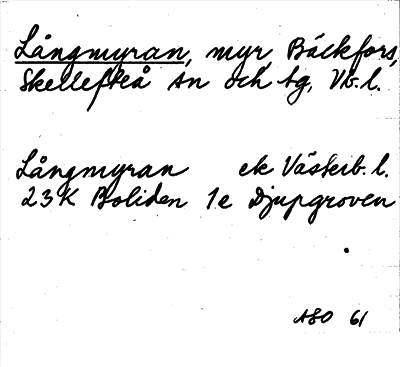 Långmyran, myr, Bäckfors,
Skellefteå sn och tg, Vb. l.
Långmyran ek Västerb. l.
23K Boliden 1e Djupgroven
ASO 61